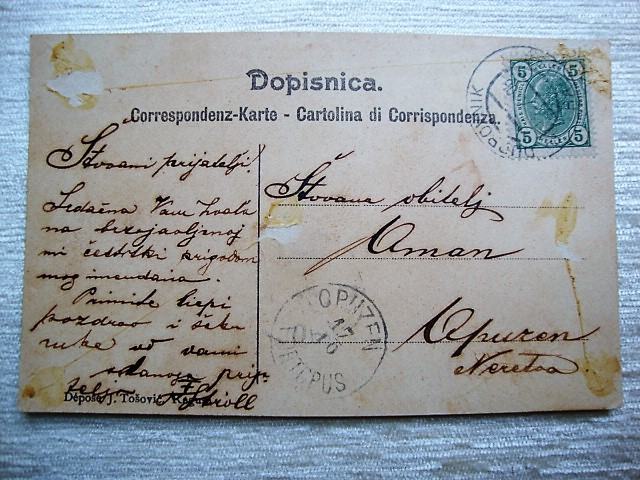 Dopisnica.
Correspondenz-Karte - Cartolina di Corrispondenza.
5 5
5 5
DUBROVNIK
Štovani prijatelji!
Srdačna Vam hvala
na brzojavljenoj
mi čestitki prigodom
mog imendana.
Primite liepi
pozdrav i
ruke od vami
odanoga prija-
telja
Štovana obitelj
Oman
Opuzen
Neretva
OPUZEN
17 6
FORT OPUS
Déposé J. Tošović,